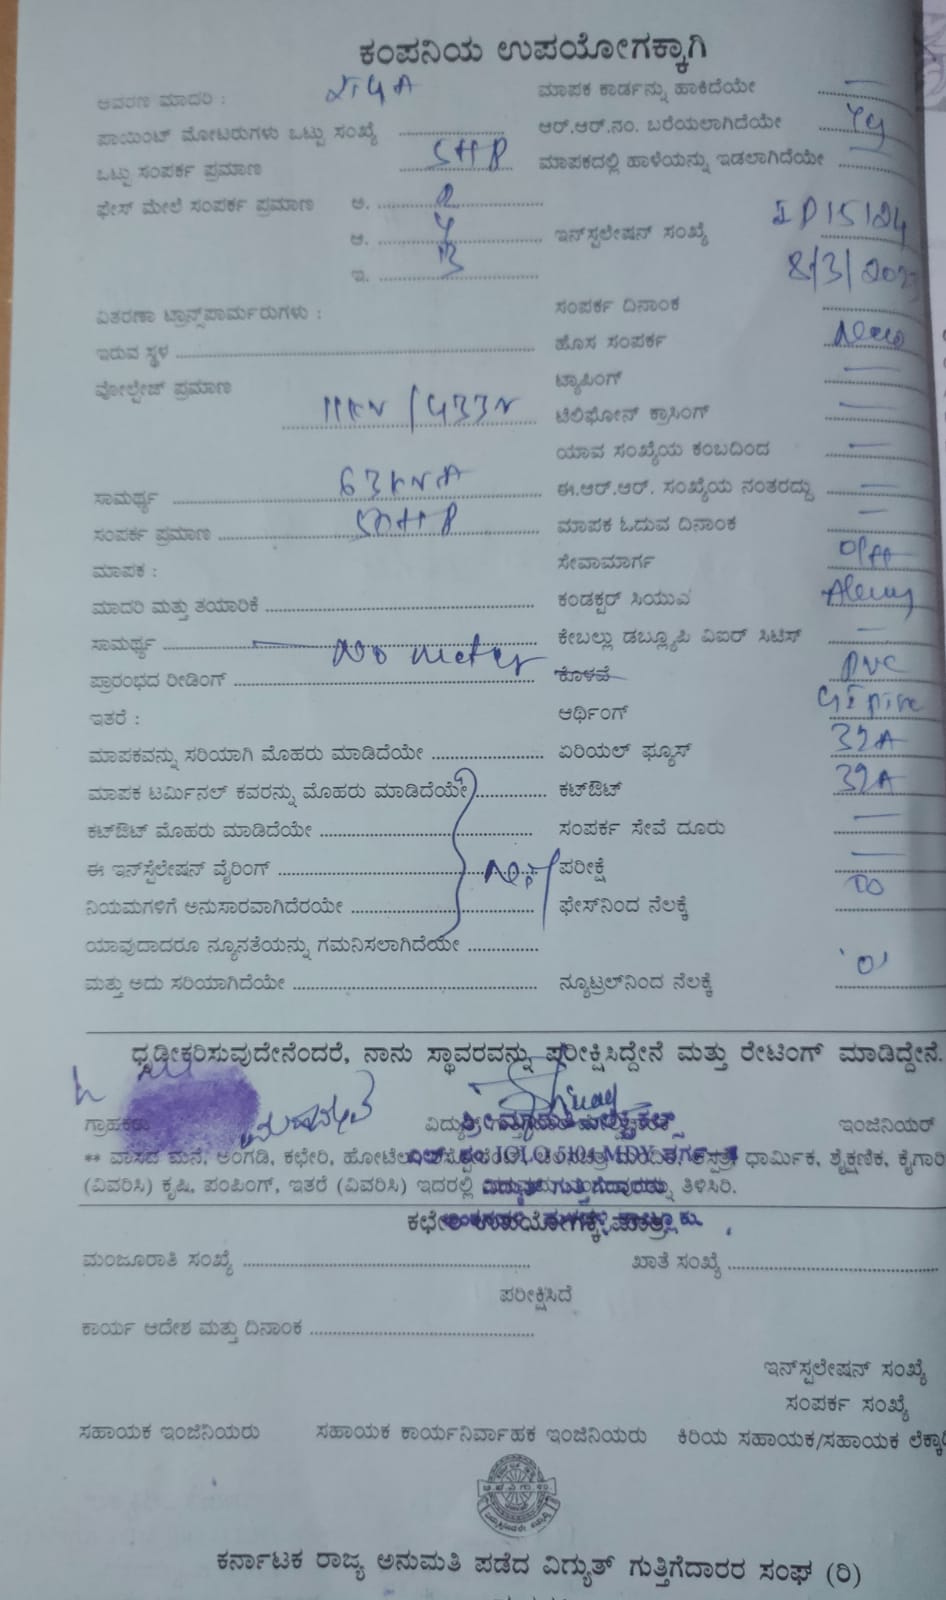 ಕಂಪನಿಯ ಉಪಯೋಗಕ್ಕಾಗಿ
ಆವರಣ ಮಾದರಿ : ಮಾಪಕ ಕಾರ್ಡನ್ನು ಹಾಕಿದೆಯೇ
ಪಾಯಿಂಟ್ ಮೋಟರುಗಳು ಒಟ್ಟು ಸಂಖ್ಯೆ ಆರ್.ಆರ್.ನಂ. ಬರೆಯಲಾಗಿದೆಯೇ
ಒಟ್ಟು ಸಂಪರ್ಕ ಪ್ರಮಾಣ 5HP ಮಾಪಕದಲ್ಲಿ ಹಾಳೆಯನ್ನು ಇಡಲಾಗಿದೆಯೇ
ಫೇಸ್ ಮೇಲೆ ಸಂಪರ್ಕ ಪ್ರಮಾಣ ಅ. R
ಆ. Y ಇನ್‌ಸ್ಪಲೇಷನ್ ಸಂಖ್ಯೆ IP15124
ಇ. B 8/3/2023
ವಿತರಣಾ ಟ್ರಾನ್ಸ್‌ಪಾರ್ಮರುಗಳು : ಸಂಪರ್ಕ ದಿನಾಂಕ
ಇರುವ ಸ್ಥಳ ಹೊಸ ಸಂಪರ್ಕ New
ವೋಲ್ಟೇಜ್ ಪ್ರಮಾಣ 11KV / 433V ಟ್ಯಾಪಿಂಗ್
ಟೆಲಿಫೋನ್ ಕ್ರಾಸಿಂಗ್
ಯಾವ ಸಂಖ್ಯೆಯ ಕಂಬದಿಂದ
ಸಾಮರ್ಥ್ಯ 63KVA ಈ.ಆರ್.ಆರ್. ಸಂಖ್ಯೆಯ ನಂತರದ್ದು
ಸಂಪರ್ಕ ಪ್ರಮಾಣ ಮಾಪಕ ಓದುವ ದಿನಾಂಕ
ಮಾಪಕ : ಸೇವಾಮಾರ್ಗ
ಮಾದರಿ ಮತ್ತು ತಯಾರಿಕೆ ಕಂಡಕ್ಟರ್ ಸಿಯುವಿ
ಸಾಮರ್ಥ್ಯ No meter ಕೇಬಲ್ಲು ಡಬ್ಲ್ಯೂಪಿ ವಿಐರ್ ಸಿಟಿಸ್
ಪ್ರಾರಂಭದ ರೀಡಿಂಗ್ ಕೊಳವೆ PVC
ಇತರೆ : ಆರ್ಥಿಂಗ್ GI pipe
ಮಾಪಕವನ್ನು ಸರಿಯಾಗಿ ಮೊಹರು ಮಾಡಿದೆಯೇ ಏರಿಯಲ್ ಫ್ಯೂಸ್ 32A
ಮಾಪಕ ಟರ್ಮಿನಲ್ ಕವರನ್ನು ಮೊಹರು ಮಾಡಿದೆಯೇ ಕಟ್‌ಔಟ್ 32A
ಕಟ್‌ಔಟ್ ಮೊಹರು ಮಾಡಿದೆಯೇ ಸಂಪರ್ಕ ಸೇವೆ ದೂರು
ಈ ಇನ್‌ಸ್ಪೆಲೇಷನ್ ವೈರಿಂಗ್ ಪರೀಕ್ಷೆ
ನಿಯಮಗಳಿಗೆ ಅನುಸಾರವಾಗಿದೆರಯೇ ಫೇಸ್‌ನಿಂದ ನೆಲಕ್ಕೆ
ಯಾವುದಾದರೂ ನ್ಯೂನತೆಯನ್ನು ಗಮನಿಸಲಾಗಿದೆಯೇ
ಮತ್ತು ಅದು ಸರಿಯಾಗಿದೆಯೇ ನ್ಯೂಟ್ರಲ್‌ನಿಂದ ನೆಲಕ್ಕೆ '0'
ಧೃಡೀಕರಿಸುವುದೇನೆಂದರೆ, ನಾನು ಸ್ಥಾವರವನ್ನು ಪರೀಕ್ಷಿಸಿದ್ದೇನೆ ಮತ್ತು ರೇಟಿಂಗ್ ಮಾಡಿದ್ದೇನೆ.
ಗ್ರಾಹಕರು ಇಂಜಿನಿಯರ್
** ವಾಸದ ಮನೆ, ಅಂಗಡಿ, ಕಛೇರಿ, ಧಾರ್ಮಿಕ, ಶೈಕ್ಷಣಿಕ,
(ವಿವರಿಸಿ) ಕೃಷಿ, ಪಂಪಿಂಗ್, ಇತರೆ (ವಿವರಿಸಿ) ಇದರಲ್ಲಿ ತಿಳಿಸಿರಿ.
ಮಂಜೂರಾತಿ ಸಂಖ್ಯೆ ಖಾತೆ ಸಂಖ್ಯೆ
ಪರೀಕ್ಷಿಸಿದೆ
ಕಾರ್ಯ ಆದೇಶ ಮತ್ತು ದಿನಾಂಕ
ಇನ್‌ಸ್ಪಲೇಷನ್ ಸಂಖ್ಯೆ
ಸಂಪರ್ಕ ಸಂಖ್ಯೆ
ಸಹಾಯಕ ಇಂಜಿನಿಯರು ಸಹಾಯಕ ಕಾರ್ಯನಿರ್ವಾಹಕ ಇಂಜಿನಿಯರು ಕಿರಿಯ ಸಹಾಯಕ/ಸಹಾಯಕ
ಕರ್ನಾಟಕ ರಾಜ್ಯ ಅನುಮತಿ ಪಡೆದ ವಿದ್ಯುತ್ ಗುತ್ತಿಗೆದಾರರ ಸಂಘ (ರಿ)